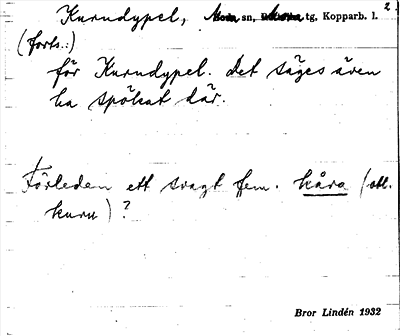 Kurudypel, Mora sn, Mora tg, Kopparb. l. 2
(forts.:)
för Kurudypel. Det säges även
ha spökat där.
Förleden ett svagt fem. kåra (ott.
kuru) ?
Bror Lindén 1932